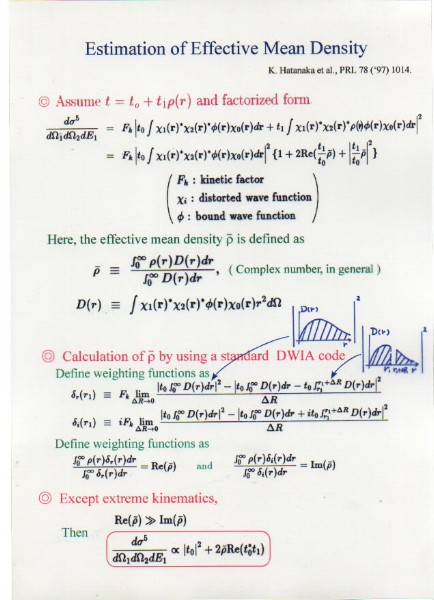 Estimation of Effective Mean Density
K. Hatanaka et al., PRL 78 ('97) 1014.
◎ Assume t = t₀ + t₁ρ(r) and factorized form.
dσ⁵/dΩ₁dΩ₂dE₁ = Fₖ|t₀∫χ₁(r)*χ₂(r)*φ(r)χ₀(r)dr + t₁∫χ₁(r)*χ₂(r)*ρ(r)φ(r)χ₀(r)dr|²
= Fₖ|t₀∫χ₁(r)*χ₂(r)*φ(r)χ₀(r)dr|² {1 + 2Re(t₁/t₀ ρ̄) + |t₁/t₀ ρ̄|²}
( Fₖ : kinetic factor
χᵢ : distorted wave function
φ : bound wave function )
Here, the effective mean density ρ̄ is defined as
ρ̄ ≡ ∫₀^∞ ρ(r)D(r)dr / ∫₀^∞ D(r)dr, (Complex number, in general)
D(r) ≡ ∫χ₁(r)*χ₂(r)*φ(r)χ₀(r)r²dΩ
|D(r) r|²
|D(r) r₁ r₁+ΔR r|²
◎ Calculation of ρ̄ by using a standard DWIA code
Define weighting functions as
δᵣ(r₁) ≡ Fₖ lim_{ΔR→0} (|t₀∫₀^∞ D(r)dr|² − |t₀∫₀^∞ D(r)dr − t₀∫_{r₁}^{r₁+ΔR} D(r)dr|²) / ΔR
δᵢ(r₁) ≡ iFₖ lim_{ΔR→0} (|t₀∫₀^∞ D(r)dr|² − |t₀∫₀^∞ D(r)dr + it₀∫_{r₁}^{r₁+ΔR} D(r)dr|²) / ΔR
Define weighting functions as
∫₀^∞ρ(r)δᵣ(r)dr / ∫₀^∞δᵣ(r)dr = Re(ρ̄) and ∫₀^∞ρ(r)δᵢ(r)dr / ∫₀^∞δᵢ(r)dr = Im(ρ̄)
◎ Except extreme kinematics,
Re(ρ̄) ≫ Im(ρ̄)
Then dσ⁵/dΩ₁dΩ₂dE₁ ∝ |t₀|² + 2ρ̄Re(t₀*t₁)